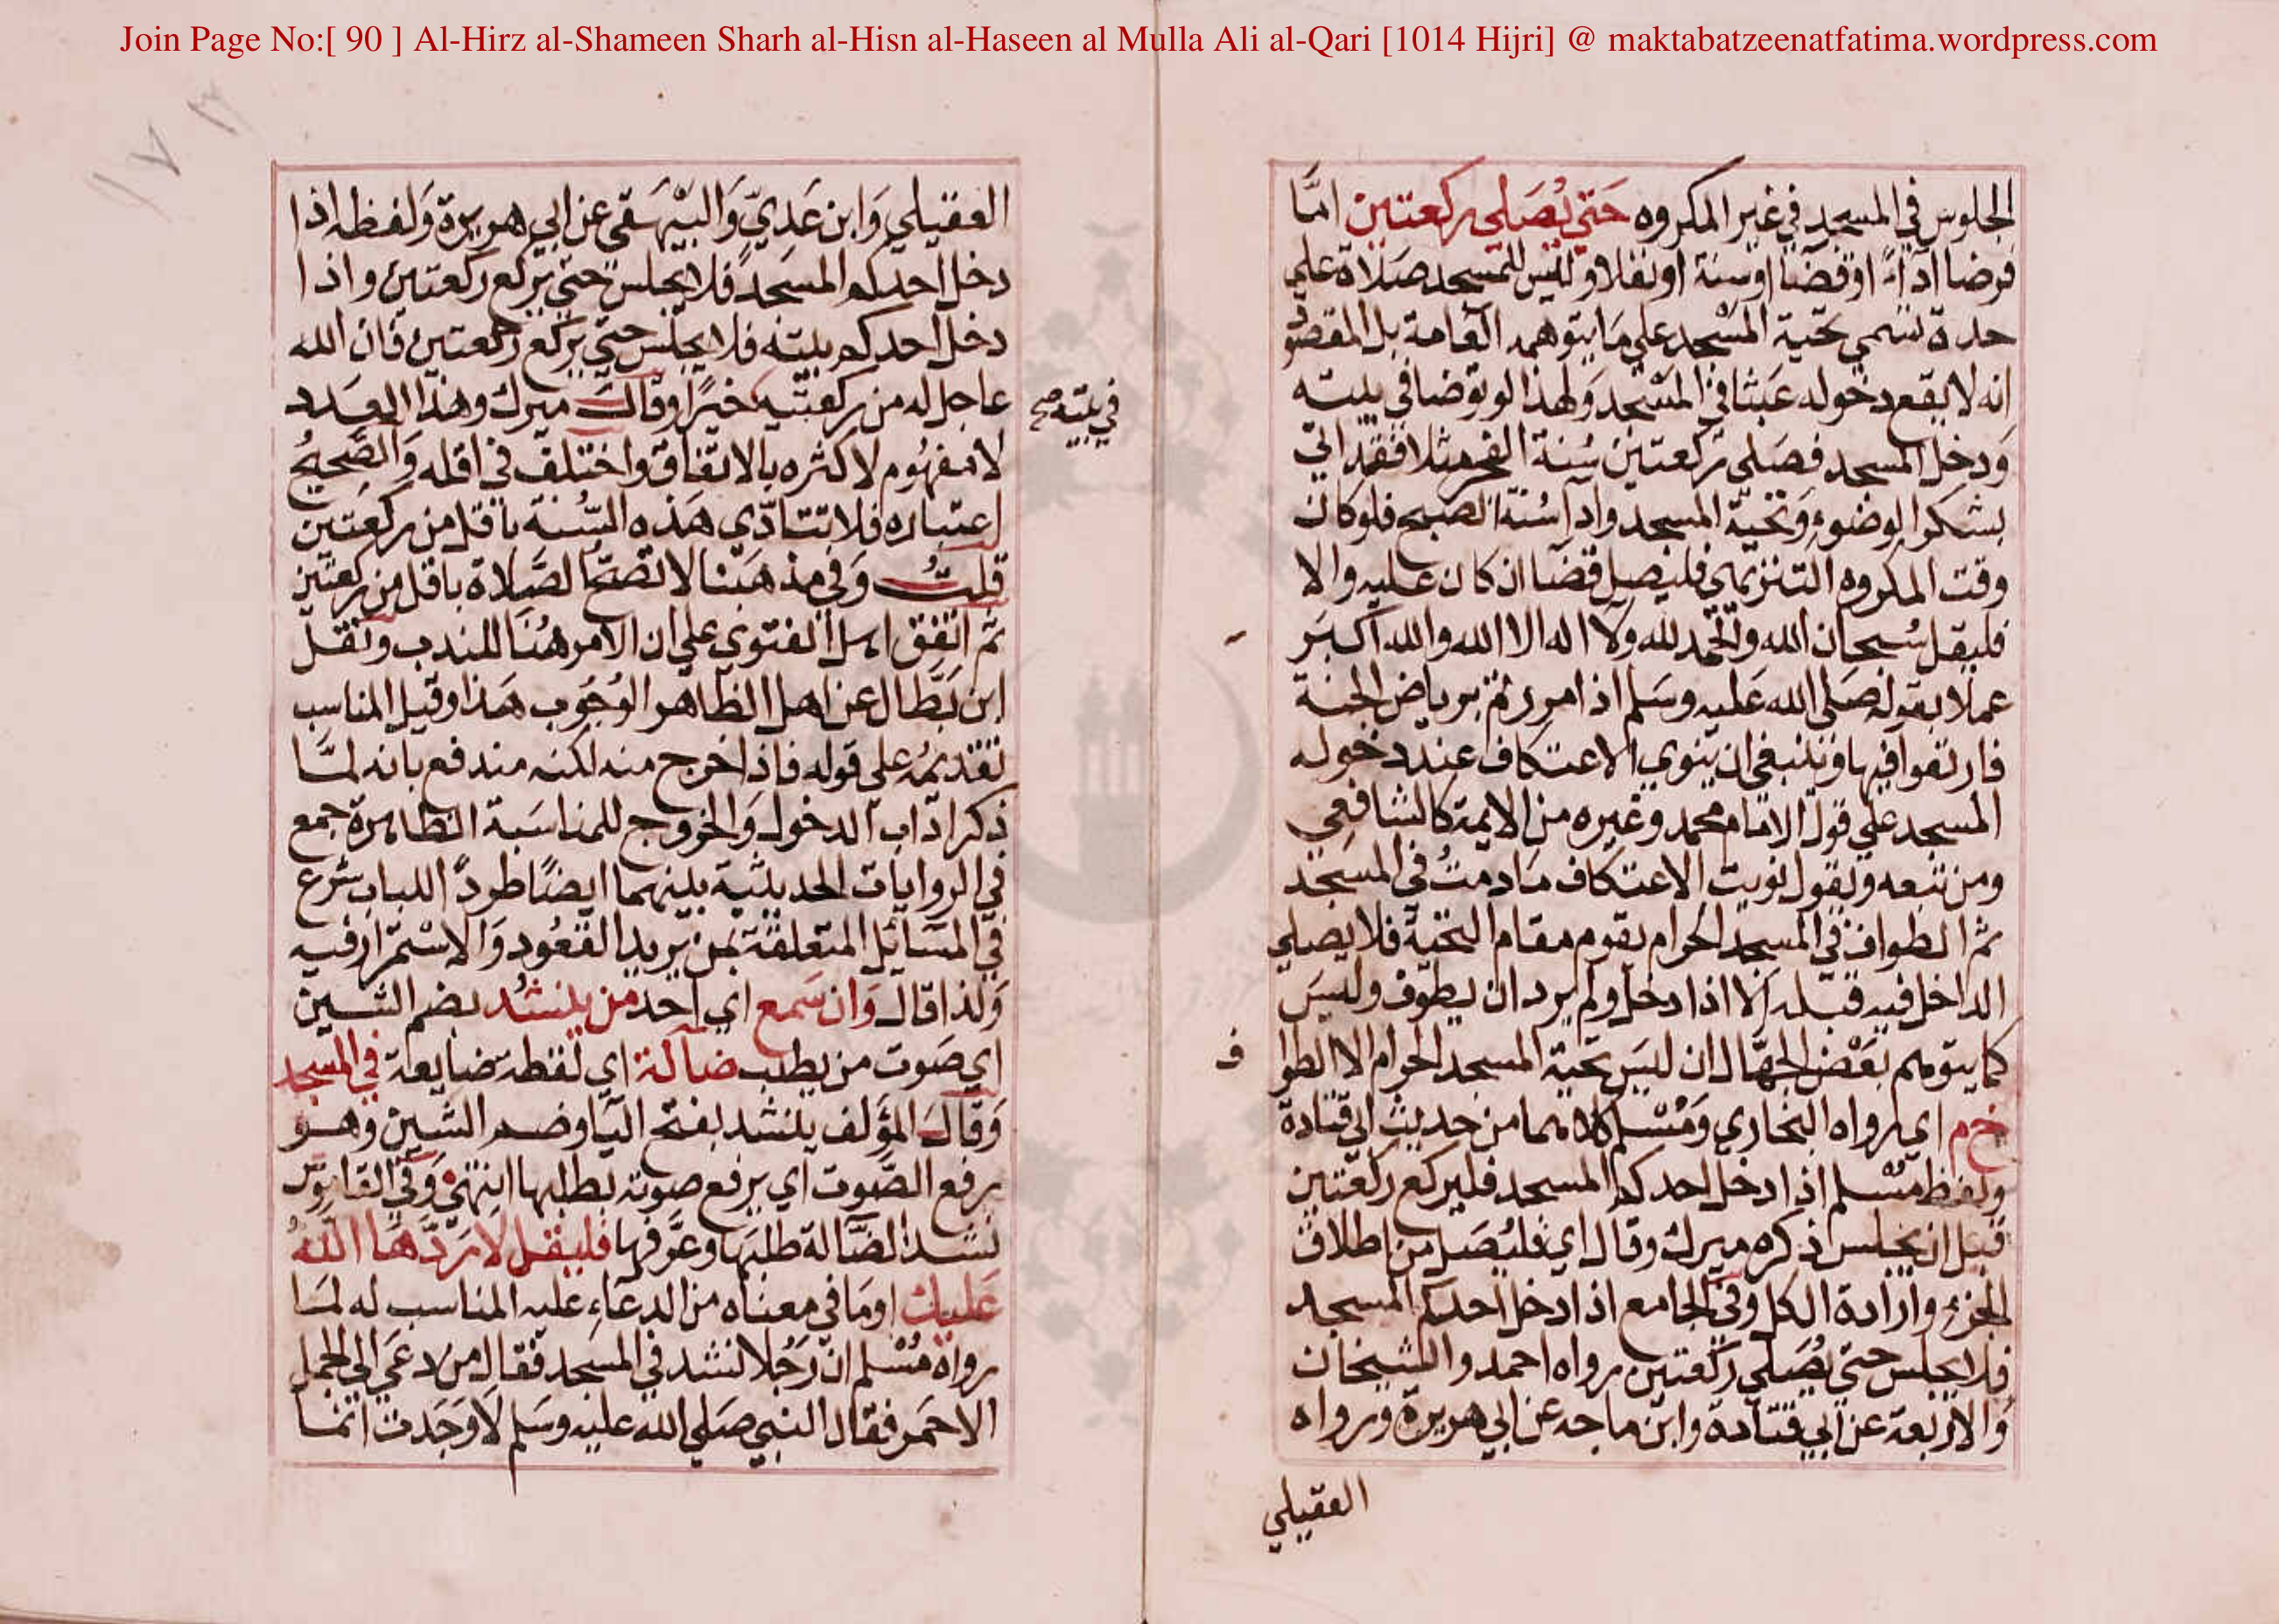 Join Page No:[ 90 ] Al-Hirz al-Shameen Sharh al-Hisn al-Haseen al Mulla Ali al-Qari [1014 Hijri] @ maktabatzeenatfatima.wordpress.com
الجلوس في المسجد في غير المكروه حَتي يُصَلي ركعتين امَّا
فرضا اداءً او قضا او سنة او نفلا و ليس للمسجد صَلاة علي
حدة تسمي تحية المسْجد علي مَا يتوهمه العَامة بل المقصود
انه لا يقع دخوله عَبثا في المسْجد وَلهذا لو توضا في بيته
وَدخل المسجد فصَلى ركعتين سُنة الفجر مثلا فقد اتي
بشكر الوضوء وَتحية المسجد واداسُنة الصبح فلو كان
وقت المكروه التنزيهي فليصل قضا ان كان عليه والا
فليقل سُبحان الله والحمد لله ولا اله الا الله والله اكبَر
عملا بقوله صَلى الله عَليه وسَلم اذا امررتم برياض الجنة
فارتعوا فيها وينبغي ان ينوي الاعتكاف عند دخوله
المسجد علي قول الامام محمد وغيره من الايمة كالشافعي
ومن تبعه ويقول نويت الاعتكاف مَا دمتُ في المسَجد
ثم الطواف في المسجد الحرام يقوم مقام التحية فلا يصلي
الداخل فيه قبله الا اذا دخل ولم يرد ان يطوف وليسَ
كما يتوهم بعْض الجهّال ان ليسَ تحية المسجد الحرام الا الطوا
خ م اي رواه البخاري وَمُسْلم كلاهما من حديث ابي قتادة
ولفظ مسْلم اذا دخل احدكم المسجد فليركع ركعتين
قبل ان يجلس ذكره ميرك وقال اي فليُصَل من اطلاق
الجزء وارادة الكل وفي الجامع اذا دخل احدكم المسجد
فلا يجلس حتي يُصَلي ركعتين رواه احمد والشيخان
وَالاربعة عن ابي قتادة وابن ماجه عن ابي هريرة ورواه
العقيلي
العقيلي وَابن عَديّ وَالبيْهَقي عن ابي هريرة وَلفظه اذا
دخل احدكم المسَجد فلا يجلس حتي يركع ركعتين واذا
دخل احدكم بيته فلا يجلس حتي يركع ركعتين فان الله
عاجل له من ركعتيه خيرًا وقالَ ميرك وهذا العدد
في بيته صح
لا مفهُوم لاكثره بالاتفاق واختلف في اقله وَالصَّحيحُ
اعتباره فلا تتادّي هَذه السُّنة باقل من ركعَتين
قلتُ وَفي مذهَبنا لا تصحّ الصَّلاة باقل من ركعتين
ثم اتفق اهل الفتوي علي ان الامر هُنا للندب ونقل
ابن بَطّال عن اهل الظاهر الوُجُوب هَذا وقيل المناسب
تقديمُه علي قوله فاذا خرج منه لكنه مندفع بانه لمَّا
ذكر ادَاب الدخول وَالخروج للمناسَبة الظاهرة جمع
في الروايات الحديثية بينهما ايضًا طردًا للباب شرع
في المسَائل المتعلقة بمن يريد القعُود وَالاسْتمرار فيه
وَلذا قال وَان سَمع اي احد من ينشُد بضم الشين
اي صَوت من يطلب ضالة اي لقطة ضايعة في المسجد
وَقالَ المؤلف ينشد بفتح اليا وضم الشين وهو
برفع الصَّوت اي يرفع صوته بطلبها انتهي وَفي القاموس
نشد الضَّالة طلبَها وعَرَّفها فليقل لا رَدَّهَا اللهُ
عَليك او مَا في معناه من الدعَاءِ عليه المناسب له لمَا
رواهُ مُسْلم ان رَجُلا نشد في المسَجد فقال من دعَي الي الجمل
الاحمَر فقال النبي صَلي الله عليه وسَلم لا وَجَدت انما